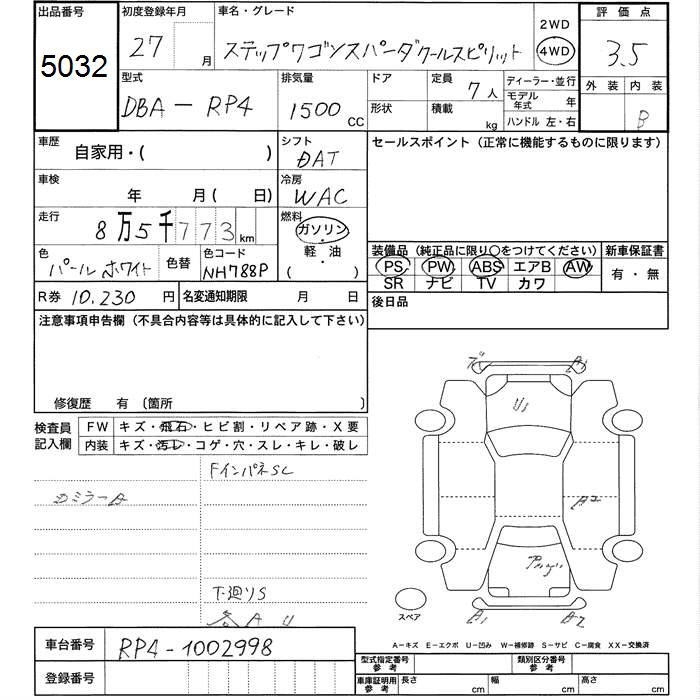 出品番号
5032
初度登録年月
27 月
車名・グレード
ステップワゴンスパーダクールスピリット
2WD
4WD
評価点
3.5
型式
DBA - RP4
排気量
1500 CC
ドア
形状
定員 7 人
積載 kg
ディーラー・並行
モデル年式 年
ハンドル 左・右
外装 内装
B
車歴
自家用・( )
シフト
DAT
セールスポイント (正常に機能するものに限ります)
車検
年 月( 日)
冷房
WAC
走行
8 万 5 千 7 7 3 km
燃料
ガソリン・
軽・油
( )
色
パールホワイト
色替
色コード
NH788P
装備品 (純正品に限り○をつけてください)
新車保証書
PS PW ABS エアB AW
SR ナビ TV カワ
有・無
R券 10,230 円
名変通知期限 月 日
後日品
注意事項申告欄 (不具合内容等は具体的に記入して下さい)
修復歴 有 〔箇所 〕
検査員
記入欄
FW キズ・飛石・ヒビ割・リペア跡・X要
内装 キズ・汚レ・コゲ・穴・スレ・キレ・破レ
FインパネSC
DミラーA
下廻りS
各A U
A1
U1
A2
B1
B2
スペア
車台番号
RP4-1002998
登録番号
A−キズ E−エクボ U−凹み W−補修跡 S−サビ C−腐食 XX−交換済
型式指定番号
参考
類別区分番号
参考
車庫証明用
参考
長さ cm 幅 cm 高さ cm